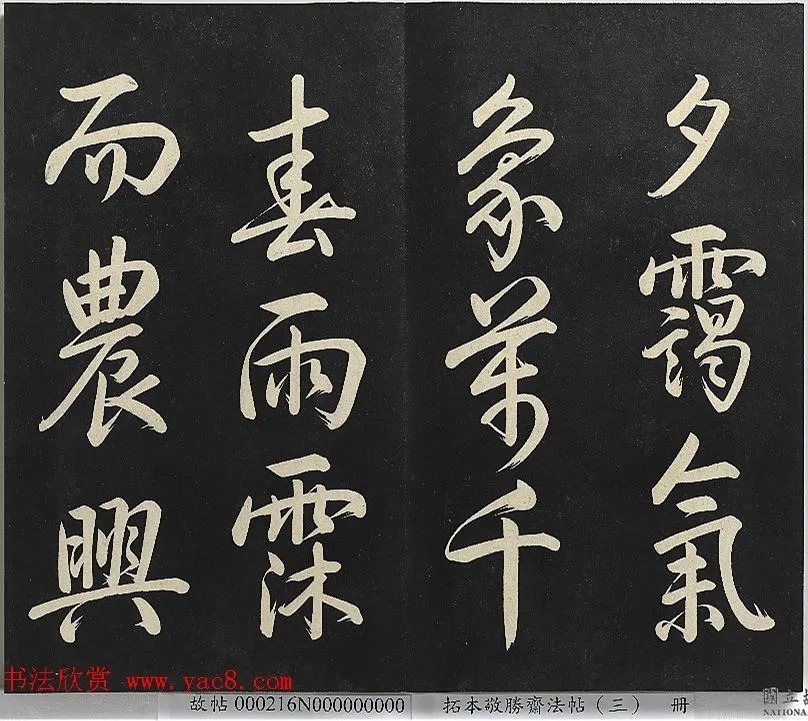 夕靄氣
象萬千
春雨霂
而農興
书法欣赏 www.yac8.com
故帖 000216N000000000 拓本敬勝齋法帖（三） 册
國立
NATIONA